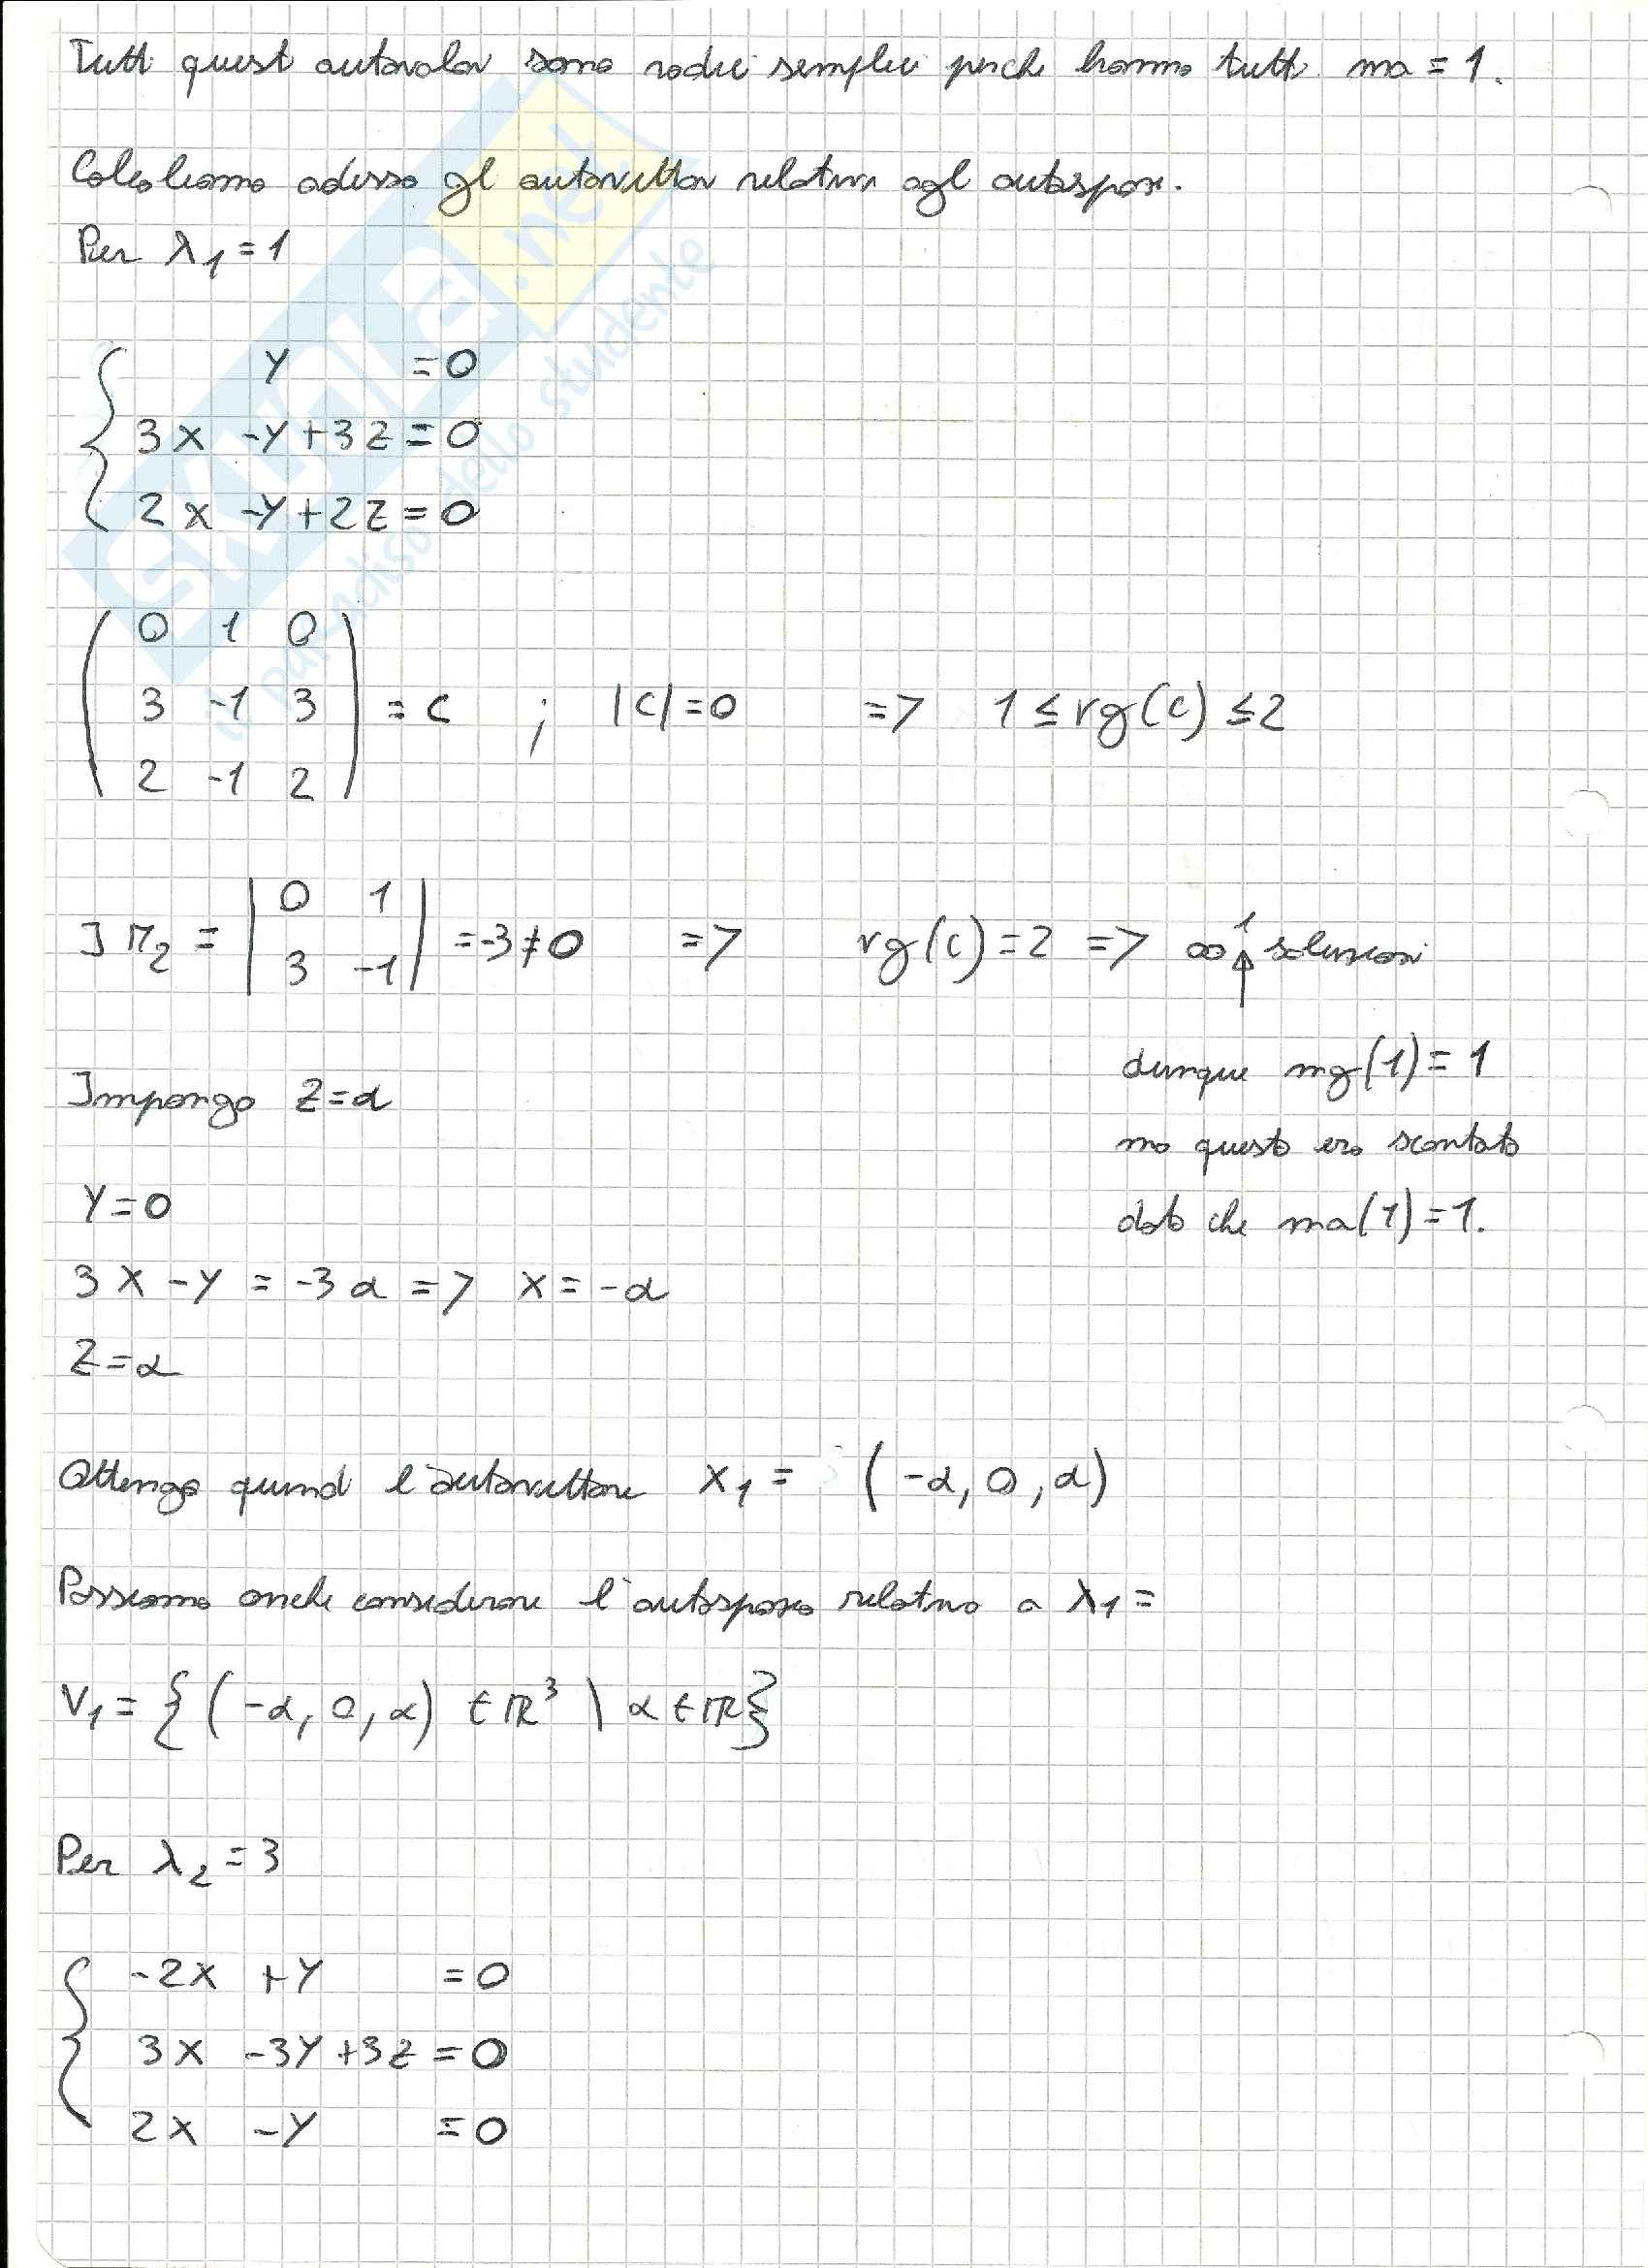 Tutti questi autovalori sono radici semplici perché hanno tutti ma = 1.
Calcoliamo adesso gli autovettori relativi agli autospazi.
Per λ₁ = 1
{ y = 0
3x - y + 3z = 0
2x - y + 2z = 0
( 0 1 0
3 -1 3 ) = C ; |C| = 0 => 1 ≤ rg(C) ≤ 2
2 -1 2
∃ M₂ = | 0 1
3 -1 | = -3 ≠ 0 => rg(C) = 2 => ∞¹ soluzioni
↑
dunque mg(1) = 1
ma questo era scontato
dato che ma(1) = 1.
Impongo z = α
y = 0
3x - y = -3α => x = -α
z = α
Ottengo quindi l'autovettore x₁ = (-α, 0, α)
Possiamo anche considerare l'autospazio relativo a λ₁ =
V₁ = { (-α, 0, α) ∈ ℝ³ \ α ∈ ℝ }
Per λ₂ = 3
{ -2x + y = 0
3x - 3y + 3z = 0
2x - y = 0
SKUOLA.net
il paradiso dello studente